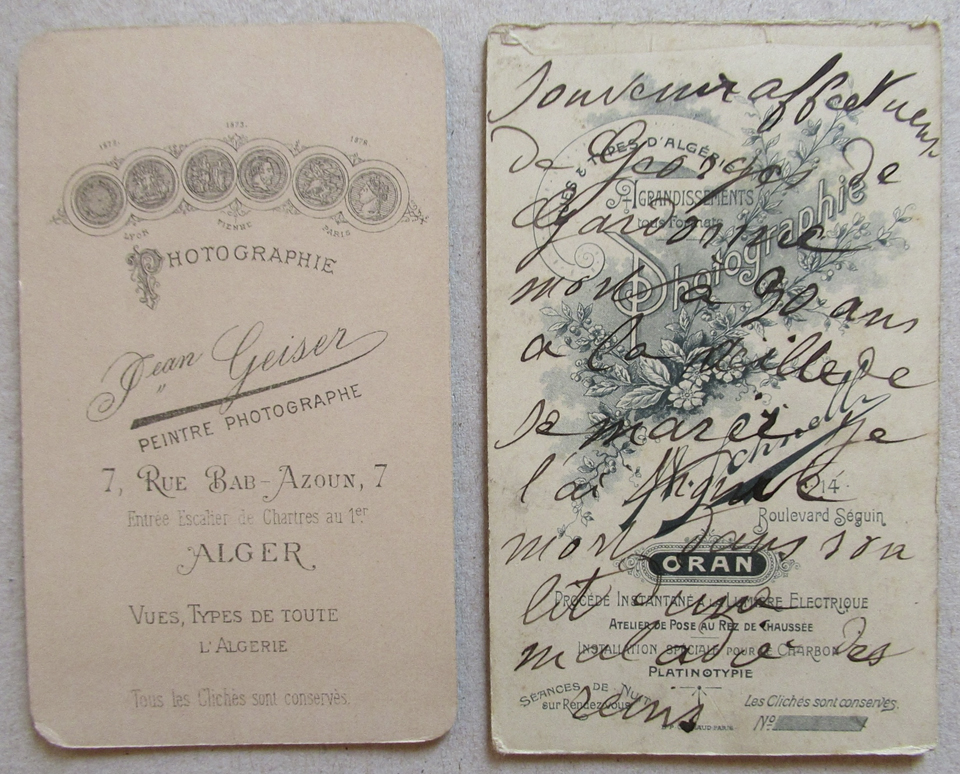 1873.
1878.
LYON
VIENNE
PARIS
PHOTOGRAPHIE
Jean Geiser
PEINTRE PHOTOGRAPHE
7, RUE BAB-AZOUN, 7
Entrée Escalier de Chartres au 1er
ALGER
VUES, TYPES DE TOUTE
L'ALGERIE
Tous les Clichés sont conservés.
Souvenir affectueux
de Georges de
mort a 30 ans
a la veille de
se marier je
l'ai
mort dans son
lit d'une
maladie des
reins
TYPES D'ALGÉRIE
AGRANDISSEMENTS
tous Formats
Photographie
14
Boulevard Séguin
ORAN
PROCÉDÉ INSTANTANÉ A LA LUMIÈRE ELECTRIQUE
ATELIER DE POSE AU REZ DE CHAUSSÉE
INSTALLATION SPÉCIALE POUR LE CHARBON
PLATINOTYPIE
SÉANCES DE NUIT
sur Rendez-vous
Les Clichés sont conservés.
No